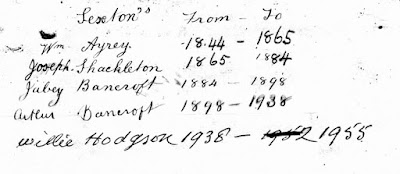 Sexton's From - To
Wm. Ayrey 1844 - 1865
Joseph Shackleton 1865 1884
Jabez Bancroft 1884 - 1898
Arthur Bancroft 1898 - 1938
Willie Hodgson 1938 - 1952 1955